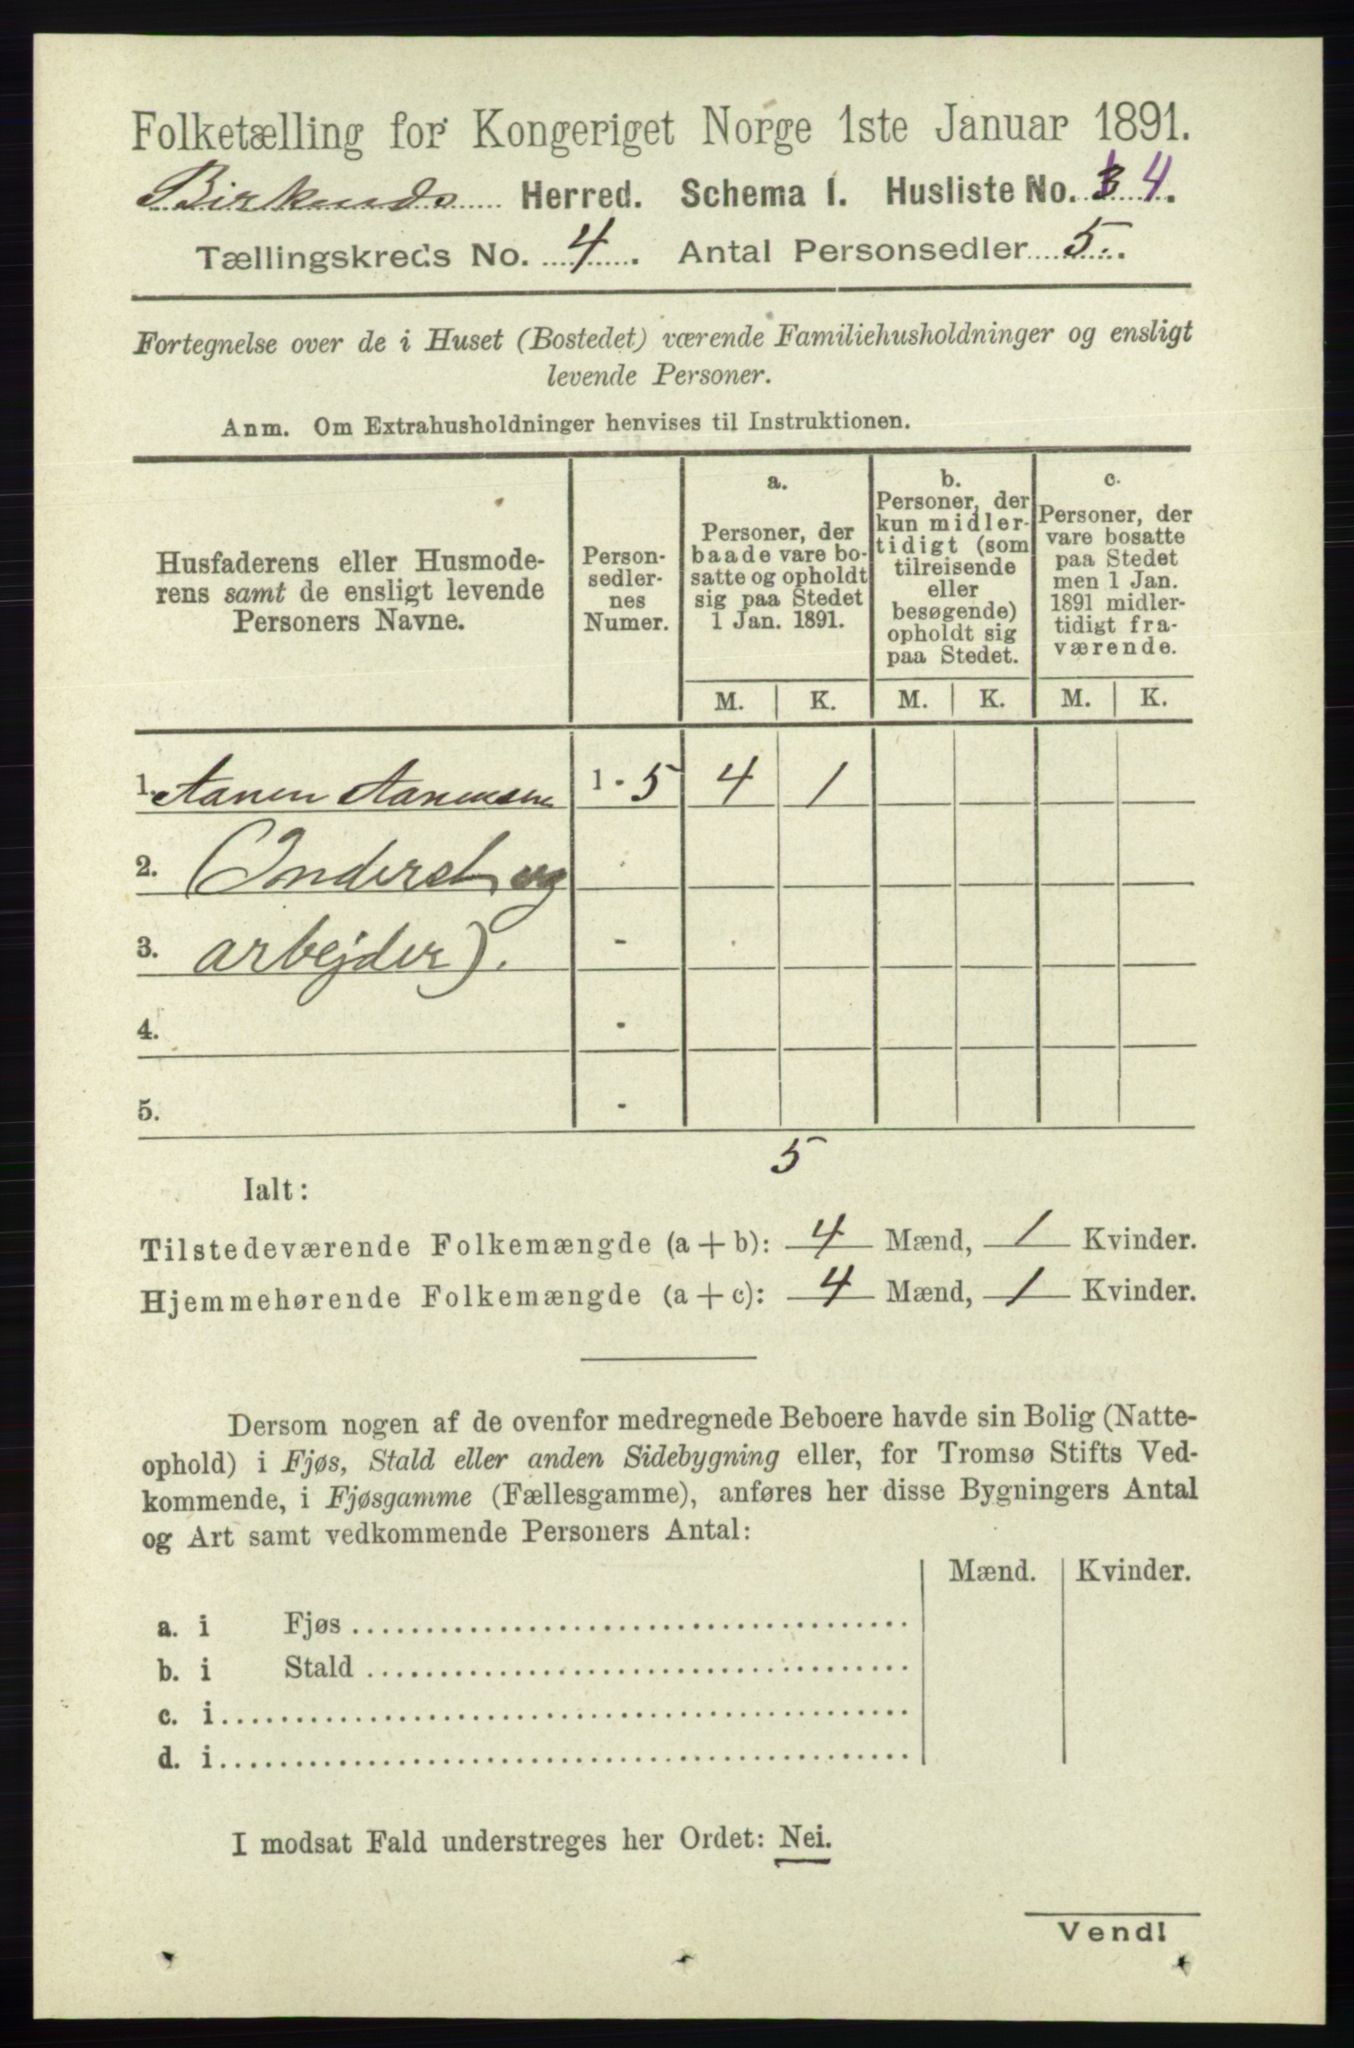 Folketælling for Kongeriget Norge 1ste Januar 1891.
Birkenæs Herred. Schema I. Husliste No. 4.
Tællingskreds No. 4. Antal Personsedler 5.
Fortegnelse over de i Huset (Bostedet) værende Familiehusholdninger og ensligt
levende Personer.
Anm. Om Extrahusholdninger henvises til Instruktionen.
Husfaderens eller Husmode-
rens samt de ensligt levende
Personers Navne.
Person-
sedler-
nes
Numer.
a.
Personer, der
baade vare bo-
satte og opholdt
sig paa Stedet
1 Jan. 1891.
b.
Personer, der
kun midler-
tidigt (som
tilreisende
eller
besøgende)
opholdt sig
paa Stedet.
c.
Personer, der
vare bosatte
paa Stedet
men 1 Jan.
1891 midler-
tidigt fra-
værende.
M. K. M. K. M. K.
1. Aanen Aanensen 1 - 5 4 1
2. (Inderst og -
3. arbejder). -
4. -
5. -
5
Ialt:
Tilstedeværende Folkemængde (a + b): 4 Mænd, 1 Kvinder.
Hjemmehørende Folkemængde (a + c): 4 Mænd, 1 Kvinder.
Dersom nogen af de ovenfor medregnede Beboere havde sin Bolig (Natte-
ophold) i Fjøs, Stald eller anden Sidebygning eller, for Tromsø Stifts Ved-
kommende, i Fjøsgamme (Fællesgamme), anføres her disse Bygningers Antal
og Art samt vedkommende Personers Antal:
Mænd. Kvinder.
a. i Fjøs
b. i Stald
c. i
d. i
I modsat Fald understreges her Ordet: Nei.
Vend!